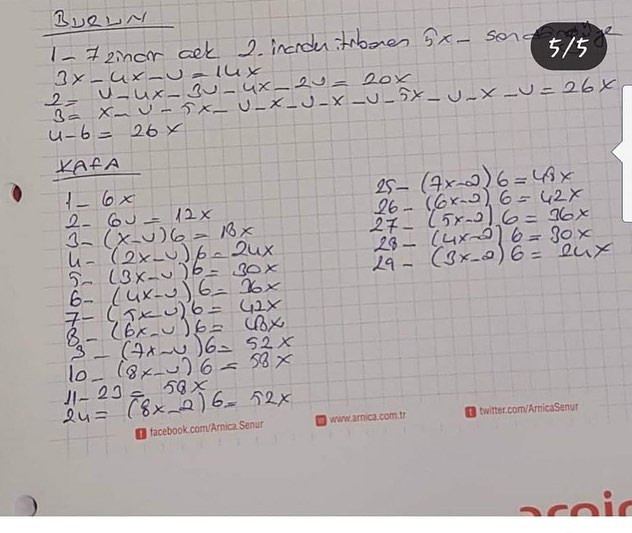 BURUN
1- 7 zincir çek 2. incirden itibaren 5x-
5/5
3x-4x-v=14x
2= v-4x-3v-4x-2v= 20x
3= x-v-5x-v-x-v-x-v-5x-v-x-v=26x
4-6= 26x
KAFA
1- 6x
2- 6v=12x
3- (x-v)6=18x
4- (2x-v)6=24x
5- (3x-v)6= 30x
6- (4x-v)6= 36x
7- (5x-v)6= 42x
8- (6x-v)6= 48x
9- (7x-v)6= 52x
10- (8x-v)6 = 58x
11-23= 58x
24= (8x-2)6= 52x
25- (7x-2)6=48x
26- (6x-2)6= 42x
27- (5x-2)6= 36x
28- (4x-2)6= 30x
29- (3x-2)6= 24x
facebook.com/Arnica.Senur
www.arnica.com.tr
twitter.com/ArnicaSenur